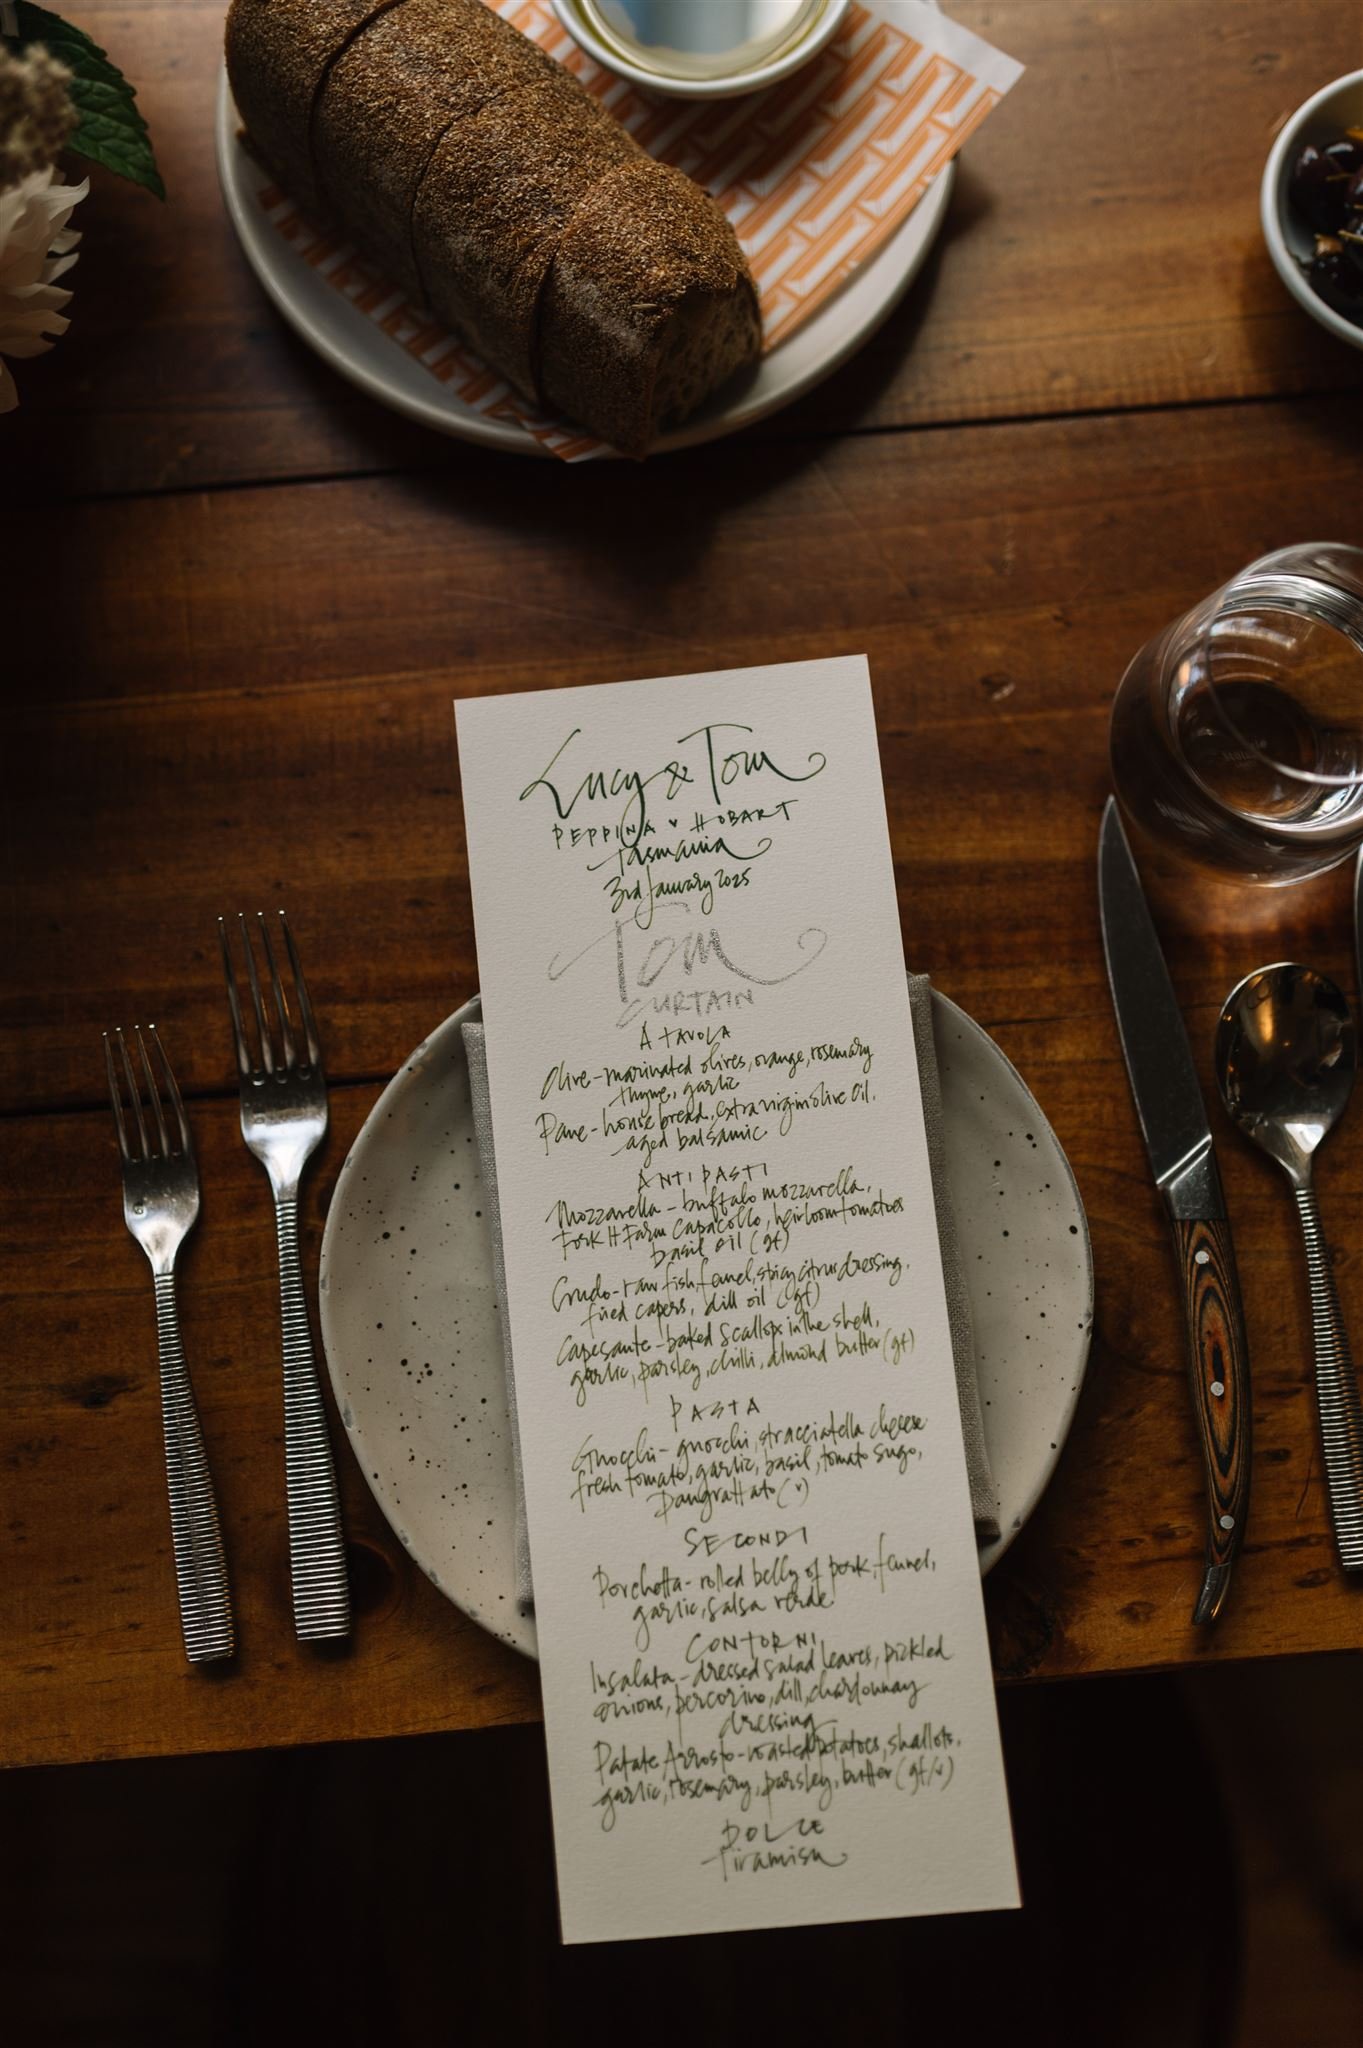 Lucy & Tom
PEPPINA HOBART
Tasmania
3rd January 2025
Tom
CURTAIN
A TAVOLA
Olive - marinated olives, orange, rosemary
thyme, garlic
Pane - house bread, extra virgin olive oil,
aged balsamic
ANTIPASTI
Mozzarella - buffalo mozzarella,
Fork It Farm capacollo, heirloom tomatoes
basil oil (gf)
Crudo - raw fish, fennel, spicy citrus dressing,
fried capers, dill oil (gf)
Capesante - baked scallops in the shell,
garlic, parsley, chilli, almond butter (gf)
PASTA
Gnocchi - gnocchi, stracciatella cheese
fresh tomato, garlic, basil, tomato sugo,
Pangrattato (v)
SECONDI
Porchetta - rolled belly of pork, fennel,
garlic, salsa verde
CONTORNI
Insalata - dressed salad leaves, pickled
onions, percorino, dill, chardonnay
dressing
Patate Arrosto - roasted potatoes, shallots,
garlic, rosemary, parsley, butter (gf/v)
DOLCE
Tiramisu